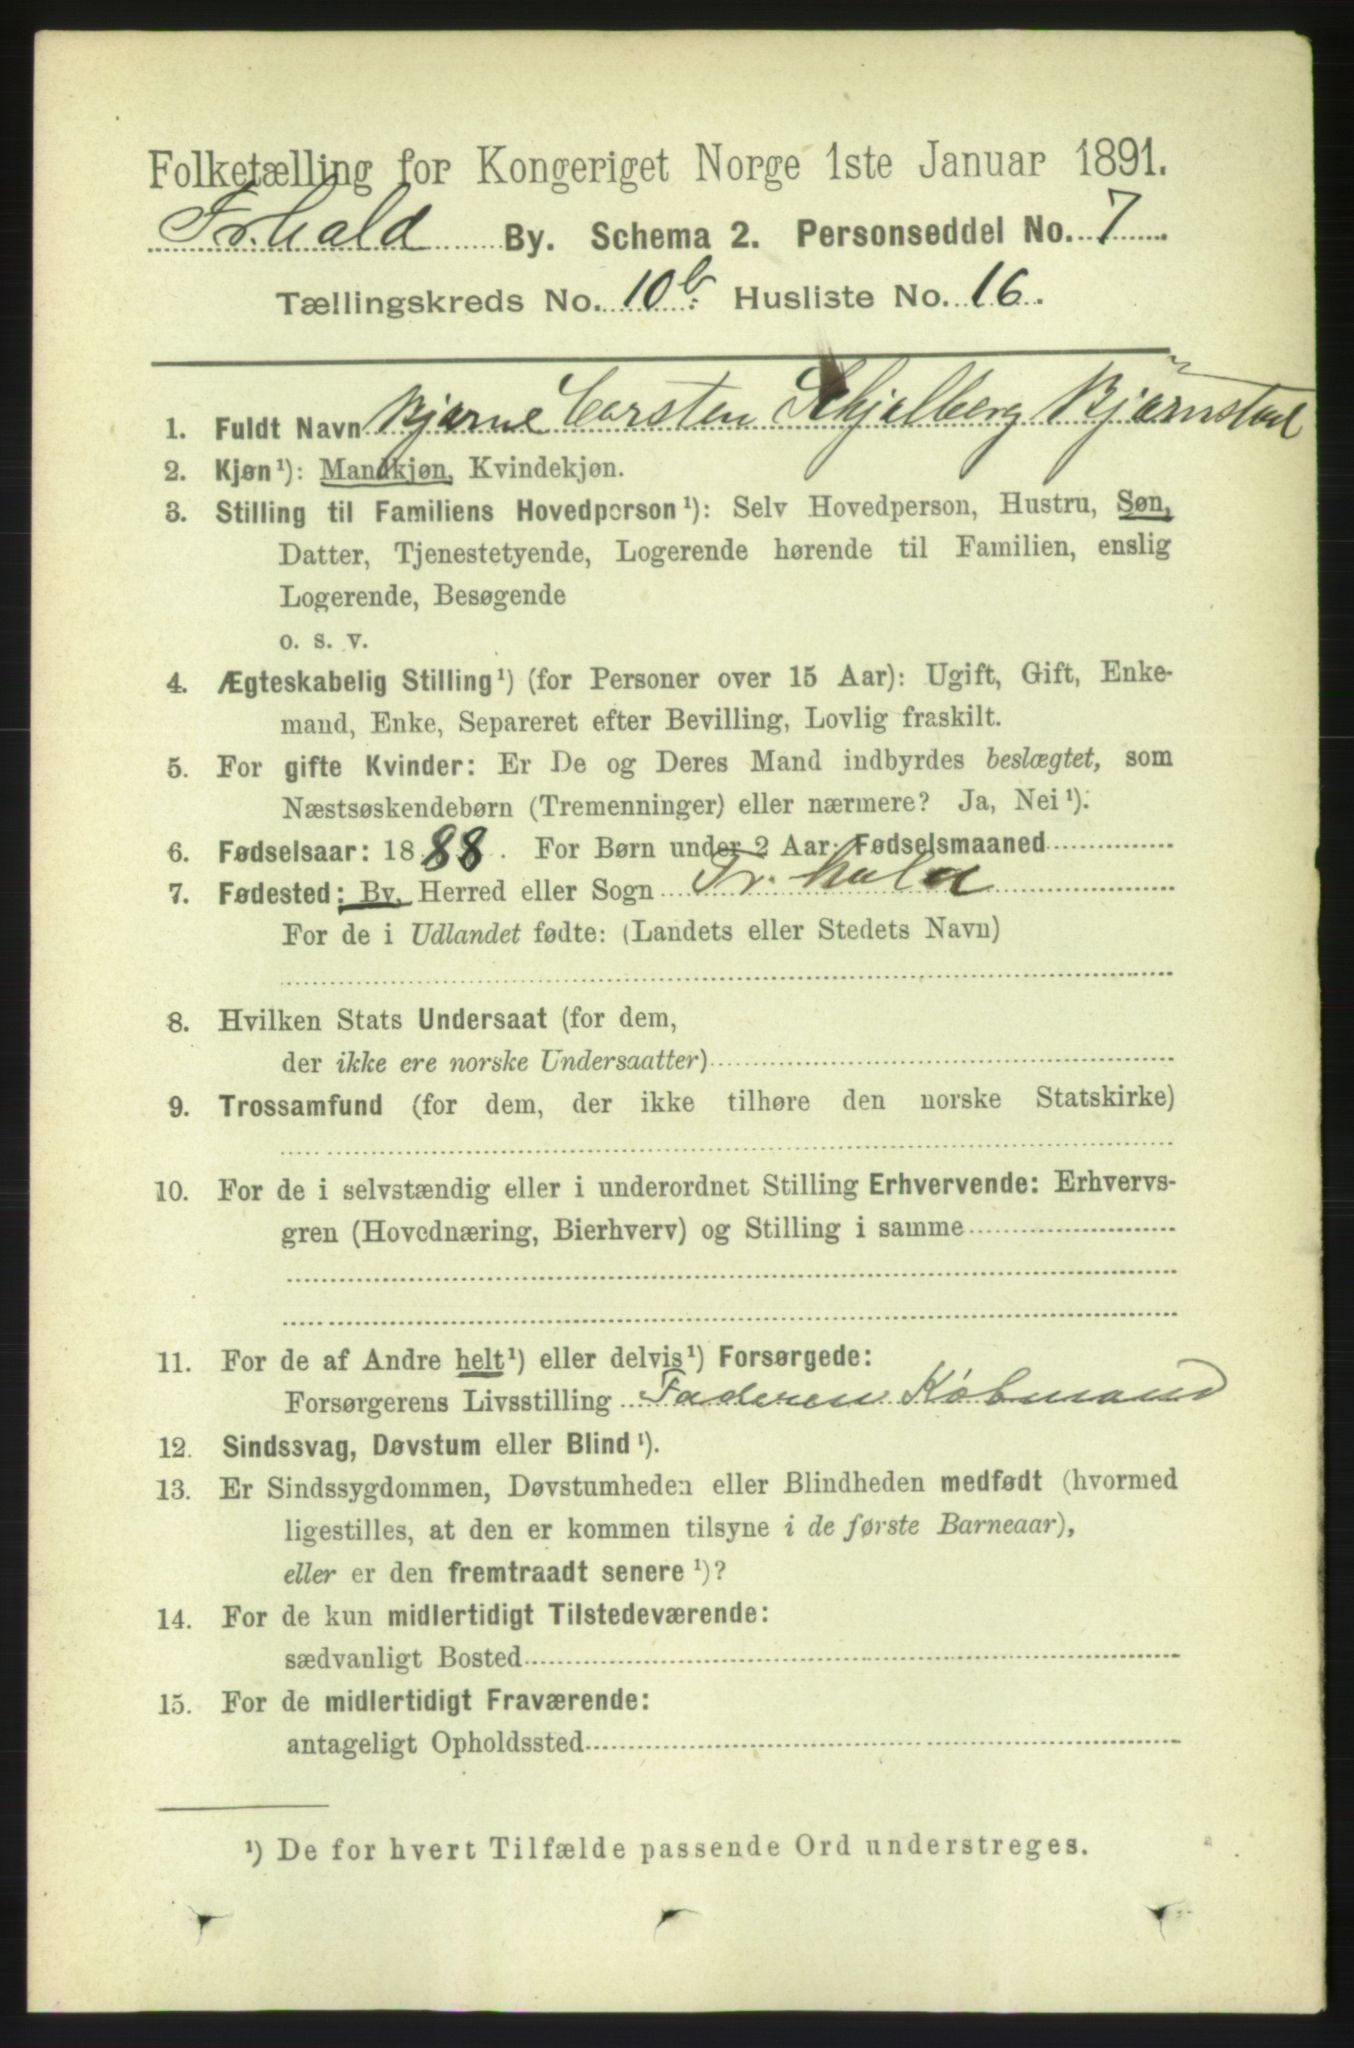 Folketælling for Kongeriget Norge 1ste Januar 1891.
Fr.hald By. Schema 2. Personseddel No. 7
Tællingskreds No. 10b. Husliste No. 16.
1. Fuldt Navn Bjarne Carsten Schjelberg Bjørnstad
2. Kjøn¹): Mandkjøn, Kvindekjøn.
3. Stilling til Familiens Hovedperson¹): Selv Hovedperson, Hustru, Søn,
Datter, Tjenestetyende, Logerende hørende til Familien, enslig
Logerende, Besøgende
o. s. v.
4. Ægteskabelig Stilling¹) (for Personer over 15 Aar): Ugift, Gift, Enke-
mand, Enke, Separeret efter Bevilling, Lovlig fraskilt.
5. For gifte Kvinder: Er De og Deres Mand indbyrdes beslægtet, som
Næstsøskendebørn (Tremenninger) eller nærmere? Ja, Nei¹).
6. Fødselsaar: 1888. For Børn under 2 Aar: Fødselsmaaned
7. Fødested: By, Herred eller Sogn Fr.hald
For de i Udlandet fødte: (Landets eller Stedets Navn)
8. Hvilken Stats Undersaat (for dem,
der ikke ere norske Undersaatter)
9. Trossamfund (for dem, der ikke tilhøre den norske Statskirke)
10. For de i selvstændig eller i underordnet Stilling Erhvervende: Erhvervs-
gren (Hovednæring, Bierhverv) og Stilling i samme
11. For de af Andre helt¹) eller delvis¹) Forsørgede:
Forsørgerens Livsstilling Faderen Købmand
12. Sindssvag, Døvstum eller Blind¹).
13. Er Sindssygdommen, Døvstumheden eller Blindheden medfødt (hvormed
ligestilles, at den er kommen tilsyne i de første Barneaar),
eller er den fremtraadt senere¹)?
14. For de kun midlertidigt Tilstedeværende:
sædvanligt Bosted
15. For de midlertidigt Fraværende:
antageligt Opholdssted
¹) De for hvert Tilfælde passende Ord understreges.